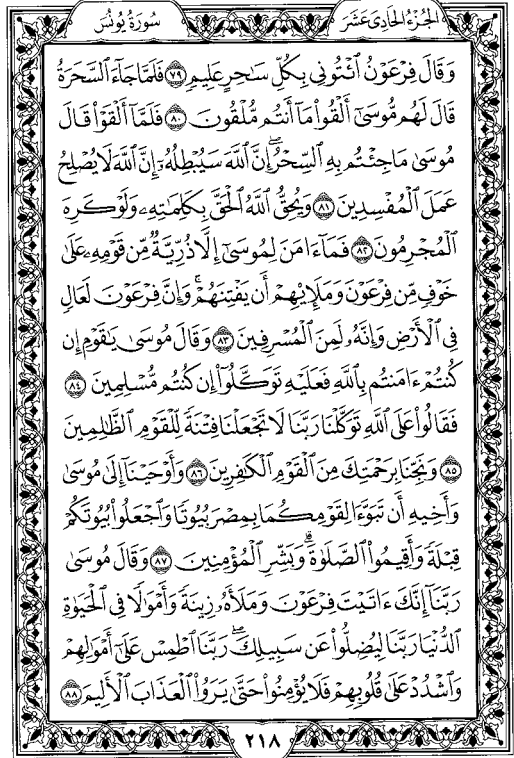 سُورَةُ يُونُسَ
الجُزْءُ الحَادِي عَشَرَ
وَقَالَ فِرْعَوْنُ ٱئْتُونِي بِكُلِّ سَٰحِرٍ عَلِيمٖ ٧٩ فَلَمَّا جَآءَ ٱلسَّحَرَةُ
قَالَ لَهُم مُّوسَىٰٓ أَلْقُوا۟ مَآ أَنتُم مُّلْقُونَ ٨٠ فَلَمَّآ أَلْقَوْا۟ قَالَ
مُوسَىٰ مَا جِئْتُم بِهِ ٱلسِّحْرُۖ إِنَّ ٱللَّهَ سَيُبْطِلُهُۥٓ إِنَّ ٱللَّهَ لَا يُصْلِحُ
عَمَلَ ٱلْمُفْسِدِينَ ٨١ وَيُحِقُّ ٱللَّهُ ٱلْحَقَّ بِكَلِمَٰتِهِۦ وَلَوْ كَرِهَ
ٱلْمُجْرِمُونَ ٨٢ فَمَآ ءَامَنَ لِمُوسَىٰٓ إِلَّا ذُرِّيَّةٌ مِّن قَوْمِهِۦ عَلَىٰ
خَوْفٍ مِّن فِرْعَوْنَ وَمَلَإِي۟هِمْ أَن يَفْتِنَهُمْۚ وَإِنَّ فِرْعَوْنَ لَعَالٍ
فِى ٱلْأَرْضِ وَإِنَّهُۥ لَمِنَ ٱلْمُسْرِفِينَ ٨٣ وَقَالَ مُوسَىٰ يَٰقَوْمِ إِن
كُنتُمْ ءَامَنتُم بِٱللَّهِ فَعَلَيْهِ تَوَكَّلُوٓا۟ إِن كُنتُم مُّسْلِمِينَ ٨٤
فَقَالُوا۟ عَلَى ٱللَّهِ تَوَكَّلْنَا رَبَّنَا لَا تَجْعَلْنَا فِتْنَةً لِّلْقَوْمِ ٱلظَّٰلِمِينَ
٨٥ وَنَجِّنَا بِرَحْمَتِكَ مِنَ ٱلْقَوْمِ ٱلْكَٰفِرِينَ ٨٦ وَأَوْحَيْنَآ إِلَىٰ مُوسَىٰ
وَأَخِيهِ أَن تَبَوَّءَا لِقَوْمِكُمَا بِمِصْرَ بُيُوتًا وَٱجْعَلُوا۟ بُيُوتَكُمْ
قِبْلَةً وَأَقِيمُوا۟ ٱلصَّلَوٰةَۗ وَبَشِّرِ ٱلْمُؤْمِنِينَ ٨٧ وَقَالَ مُوسَىٰ
رَبَّنَآ إِنَّكَ ءَاتَيْتَ فِرْعَوْنَ وَمَلَأَهُۥ زِينَةً وَأَمْوَٰلًا فِى ٱلْحَيَوٰةِ
ٱلدُّنْيَا رَبَّنَا لِيُضِلُّوا۟ عَن سَبِيلِكَۖ رَبَّنَا ٱطْمِسْ عَلَىٰٓ أَمْوَٰلِهِمْ
وَٱشْدُدْ عَلَىٰ قُلُوبِهِمْ فَلَا يُؤْمِنُوا۟ حَتَّىٰ يَرَوُا۟ ٱلْعَذَابَ ٱلْأَلِيمَ ٨٨
٢١٨